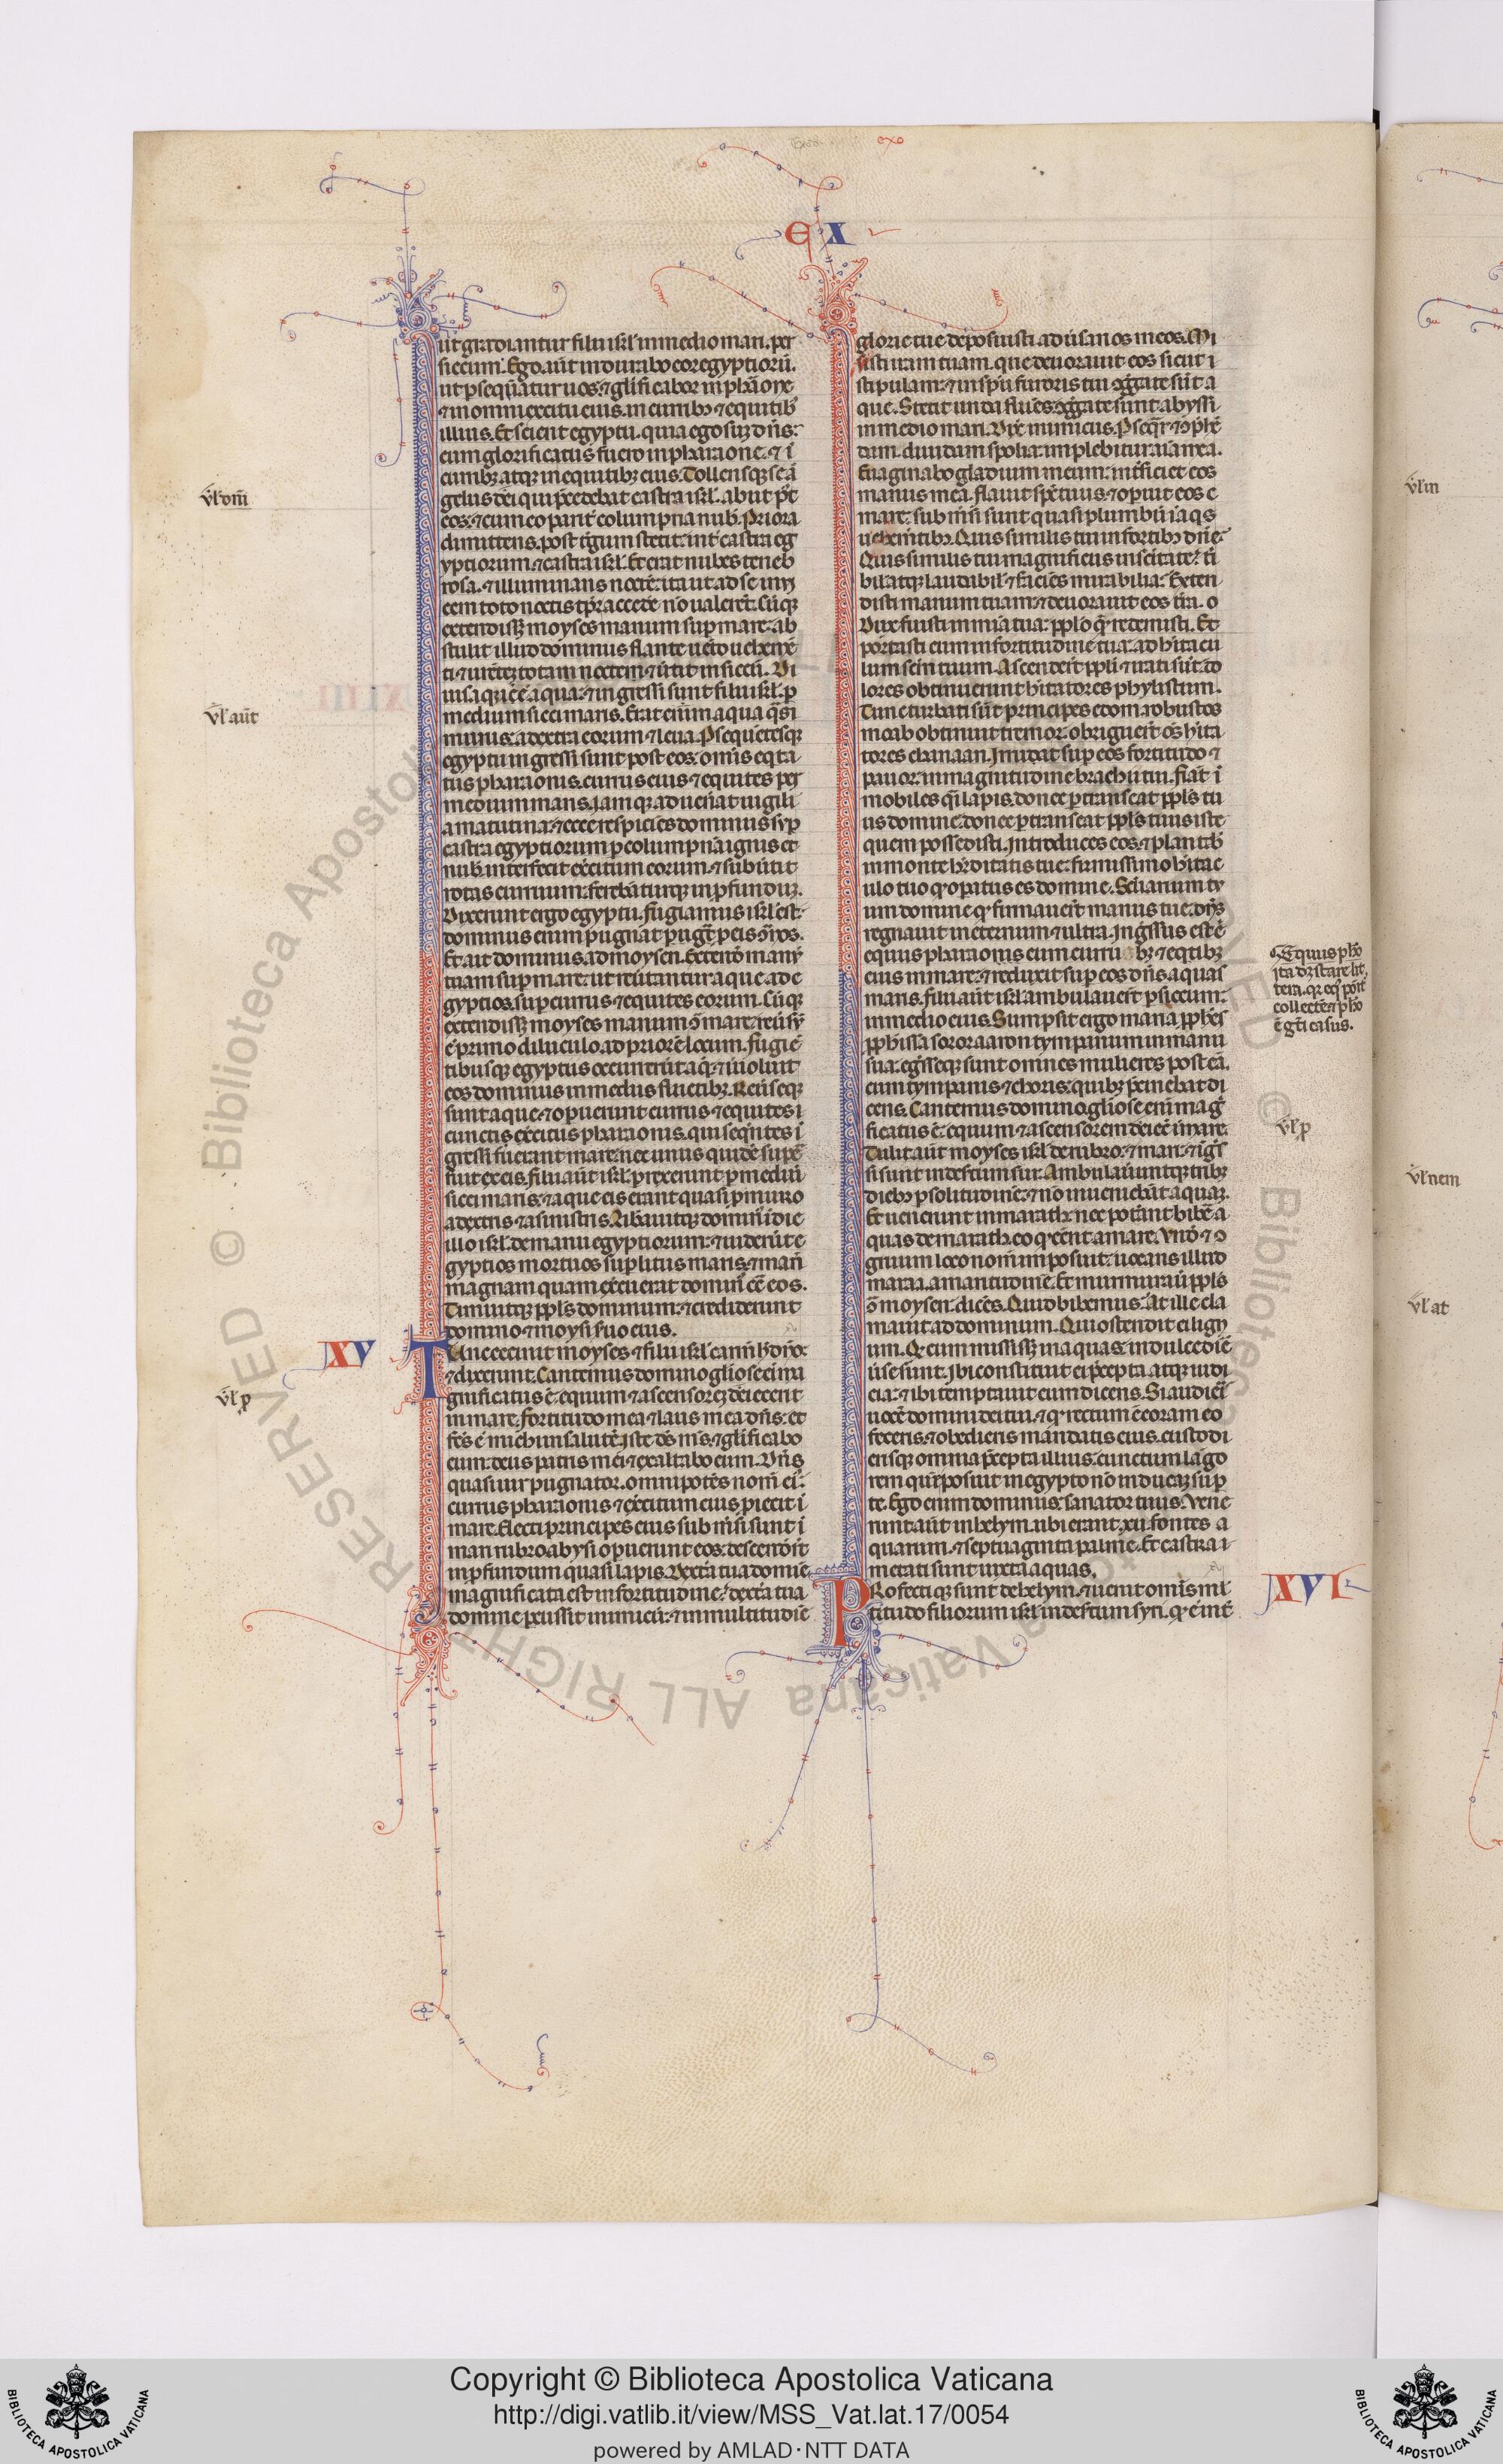 exo
EX
ut gradiantur filii isrl' in medio mari per
siccum. Ego aut indurabo cor egyptioru.
ut psequatur uos. ⁊ glificabor in pharaone
⁊ in omni exercitu eius. in curribꝫ ⁊ equitibꝫ
illius. Et scient egyptii. quia ego suꝫ dns:
cum glorificatus fuero in pharaone. ⁊ i
curribꝫ atqꝫ in equitibꝫ eius. Tollensqꝫ se a
gelus dei qui pcedebat castra isrl'. abiit pt
eos. ⁊ cum eo parit columpna nub. Priora
dimittens. post tgum stetit: int castra eg
yptiorum. ⁊ castra isrl'. Et erat nubes teneb
rosa. ⁊ illuminans nocte. ita ut ad se inui
cem toto noctis tpr accede no ualeret. Cuqꝫ
extendissꝫ moyses manum sup mare: ab
stulit illud dominus flante ueto uehem
ti ⁊ urete. tota nocte. ⁊ utit in siccu. Di
uisaqꝫ e aqua. ⁊ ingressi sunt filii isrl'. p
medium sicci maris. Erat eni aqua qsi
murus. a dextra eorum ⁊ leua. Psequetesqꝫ
egyptii ingressi sunt post eos. omis eqta
tus pharaonis. currus eius ⁊ equites per
medium maris. Iamqꝫ aduenat uigili
a matutina: ⁊ ecce respicies dominus sup
castra egyptiorum p columpna ignis et
nub. interfecit exercitum eorum. ⁊ subutit
rotas curruum. ferebaturqꝫ in pfunduꝫ.
Dixerunt ergo egyptii. fugiamus isrl'em:
dominus enim pugnat p eis contra nos.
Et ait dominus ad moysen. Extende manu
tuam sup mare. ut reutantur aque ad e
gyptios. sup currus ⁊ equites eorum. Cuqꝫ
extendissꝫ moyses manum contra mare: reusu
e primo diluculo. ad priore locum. fugie
tibusqꝫ egyptiis occurrerut aq. ⁊ iuoluit
eos dominus in mediis fluctibꝫ. Reuseqꝫ
sunt aque. ⁊ opuerunt currus ⁊ equites i
cunctis exercitus pharaonis. qui seqntes i
gressi fuerant mare. nec unus quide supe
fuit ex eis. filii aut isrl'. prexerunt p mediu
sicci maris. ⁊ aque eis erant quasi p muro
a dextris ⁊ a sinistris. Libauitqꝫ domin i die
illo isrl'. de manu egyptiorum: ⁊ uiderut e
gyptios mortuos sup litus maris. ⁊ man
magnam quam excuerat domin contra eos.
Timuitqꝫ ppls dominum: ⁊ crediderunt
domino ⁊ moysi suo eius.
XV
Tunc cecinit moyses ⁊ filii isrl' carmen hoc dno:
⁊ dixerunt. Cantemus domino gliose eni ma
gnificatus e. equum ⁊ ascensoreꝫ deiecerit
in mare. fortitudo mea ⁊ laus mea dns: et
fcs e michi in salute. Iste ds ms. ⁊ glificabo
eum. deus patris mei ⁊ exaltabo eum. Dns
quasi uir pugnator. omnipotes nom ei:
currus pharaonis ⁊ exercitum eius piecit i
mare. Electi principes eius submsi sunt i
mari rubro. abysi opuerunt eos. descendert
in pfundum quasi lapis. Dextra tua domie
magnificata est in fortitudine. dextra tua
domine pcussit inimicu: ⁊ in multitudie
glorie tue deposuisti aduersarios meos. Mi
sisti iram tuam. que deuorauit eos sicut i
stipulam: ⁊ in spu furoris tui cggate sut a
que. Stetit unda flues. cggate sunt abyssi
in medio mari. Dixit inimicus. Pseqr ⁊ cprhe
dam. diuidam spolia: implebitur aia mea.
Euaginabo gladium meum: inficiet eos
manus mea. flauit sps tuus. ⁊ opuit eos e
mare: submsi sunt quasi plumbu i aqs
uehemtibꝫ. Quis similis tui in fortibꝫ dne:
Quis similis tui magnificus in scitate: ti
bilatqꝫ laudabil' ⁊ facies mirabilia: Exten
disti manum tuam: ⁊ deuorauit eos tra. o
Dux fuisti in mia tua: pplo q redemisti. Et
portasti eum in fortitudine tua: ad hitacu
lum scm tuum. Ascendert ppli ⁊ irati sut. do
lores obtinuerunt hitatores phylistiim.
Tunc turbati sut principes edom. robustos
moab obtinuit tremor. obriguert oms hita
tores chanaan. Irruat sup eos fortitudo ⁊
pauor. in magnitudine brachii tui. fiat i
mobiles qsi lapis. donec ptranseat ppls tu
us domine. donec ptranseat ppls tuus iste
quem possedisti. Introduces eos. ⁊ plantab
in monte hereditatis tue: firmissimo hitac
ulo tuo q opatus es domine. Sctuarium ty
um domine q firmauert manus tue. dns
regnauit in eternum ⁊ ultra. Ingssus est e
equus pharaonis cum curribꝫ ⁊ eqtibꝫ
eius in mare: ⁊ reduxit sup eos dns aquas
maris. filii aut isrl' ambulauert p siccum:
in medio eius. Sumpsit ergo maria pphes
pphissa soror aaron tympanum in manu
sua: egsseqꝫ sunt omnes mulieres post ea.
cum tympanis ⁊ choris: quibꝫ pcinebat di
cens. Cantemus domino. gliose eni mag
ficatus e: equum ⁊ ascensorem deiec i mare.
Tulit aut moyses isrl' de rubro. ⁊ mari: ⁊ igs
si sunt in desertum sur. Ambulaueruntqꝫ tribꝫ
diebꝫ p solitudine: ⁊ no inueniebat aquaꝫ.
Et uenerunt in marath: nec poterant bibe a
quas de marath. eo q eent amare. Vnd ⁊ co
gruum loco nom imposuit: uocans illud
mara. amaritudine. Et murmurau ppls
contra moysen: dices. Quid bibemus: At ille cla
mauit ad dominum. Qui ostendit ei lign
um. Qꝫ cum misissꝫ in aquas: in dulcedie
use sunt. Ibi constituit ei pcepta atqꝫ iudi
cia. ⁊ ibi temptauit eum dicens. Si audieris
uoce domini dei tui. ⁊ q rectum e coram eo
feceris. ⁊ obedieris mandatis eius. custodi
erisqꝫ omnia pcepta illius: cunctum lago
rem que posui in egypto. no inducaꝫ sup
te. Ego enim dominus: sanator tuus. Vene
runt aut in helym. ubi erant. xii. fontes a
quarum. ⁊ septuaginta palme. Et castra i
metati sunt iuxta aquas.
XVI
Profectiqꝫ sunt de helym. ⁊ uenit omis ml
titudo filiorum isrl' in desertum syn. q e int
ul' dni
ul' aut
ul' p
Equus pho
ita dꝫ stare lit
tera. qꝫ eqs poit
collectee ⁊ pho
e gti casus.
ul' p
ul' in
ul' nem
ul' at
RESERVED © Biblioteca Apostolica Vaticana ALL RIGHTS
Copyright © Biblioteca Apostolica Vaticana
http://digi.vatlib.it/view/MSS_Vat.lat.17/0054
powered by AMLAD·NTT DATA
BIBLIOTECA APOSTOLICA VATICANA
BIBLIOTECA APOSTOLICA VATICANA